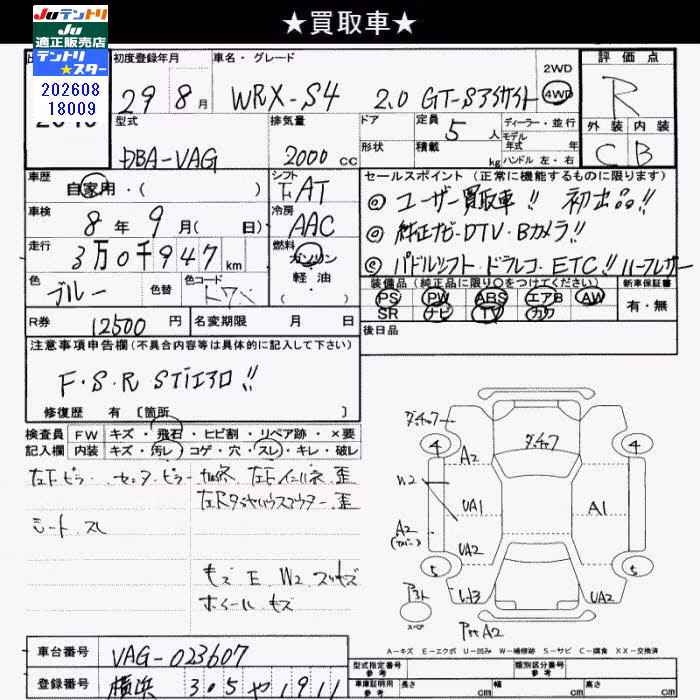 ★買取車★
Juテントリ
Ju
適正販売店
テントリ
★スター
202608
18009
初度登録年月
29年 8月
車名・グレード
WRX-S4 2.0 GT-Sアイサイト
2WD
4WD
評価点
R
外装 内装
C B
型式
DBA-VAG
排気量
2000 cc
ドア
形状
定員 5人
積載 kg
ディーラー・並行
モデル年式 年式
ハンドル 左・右
車歴
自家用・( )
シフト
FAT
車検
8年 9月( 日)
冷房
AAC
走行
3万0千947 km
燃料
ガソリン
軽油
( )
色
ブルー
色替
色コード
R券 12500円
名変期限 月 日
セールスポイント(正常に機能するものに限ります)
◎ユーザー買取車!! 初出品!!
◎純正ナビ・DTV・Bカメラ!!
◎パドルシフト・ドラレコ・ETC!! ハーフレザー
装備品(純正品に限り○をつけてください)
新車保証書
PS PW ABS エアB AW
SR ナビ TV カワ
有・無
後日品
注意事項申告欄(不具合内容等は具体的に記入して下さい)
F・S・R STIエアロ!!
修復歴 有[箇所 ]
検査員
記入欄
FW キズ・飛石・ヒビ割・リペア跡・×要
内装 キズ・汚レ・コゲ・穴・スレ・キレ・破レ
左Fピラー センターピラー
左Fインパネ 歪
左Rタイヤハウスアウター 歪
シート スレ
キズ E W2 スリキズ
ホイール キズ
4
4
5
5
A2
W2
UA1
A1
A2
UA2
UA2
スペア
A2
A-キズ E-エクボ U-凹み W-補修跡 S-サビ C-腐食 XX-交換済
車台番号 VAG-023607
登録番号 横浜 305 や 1911
型式指定番号 参考
類別区分番号 参考
車庫証明用 参考
長さ cm
幅 cm
高さ cm